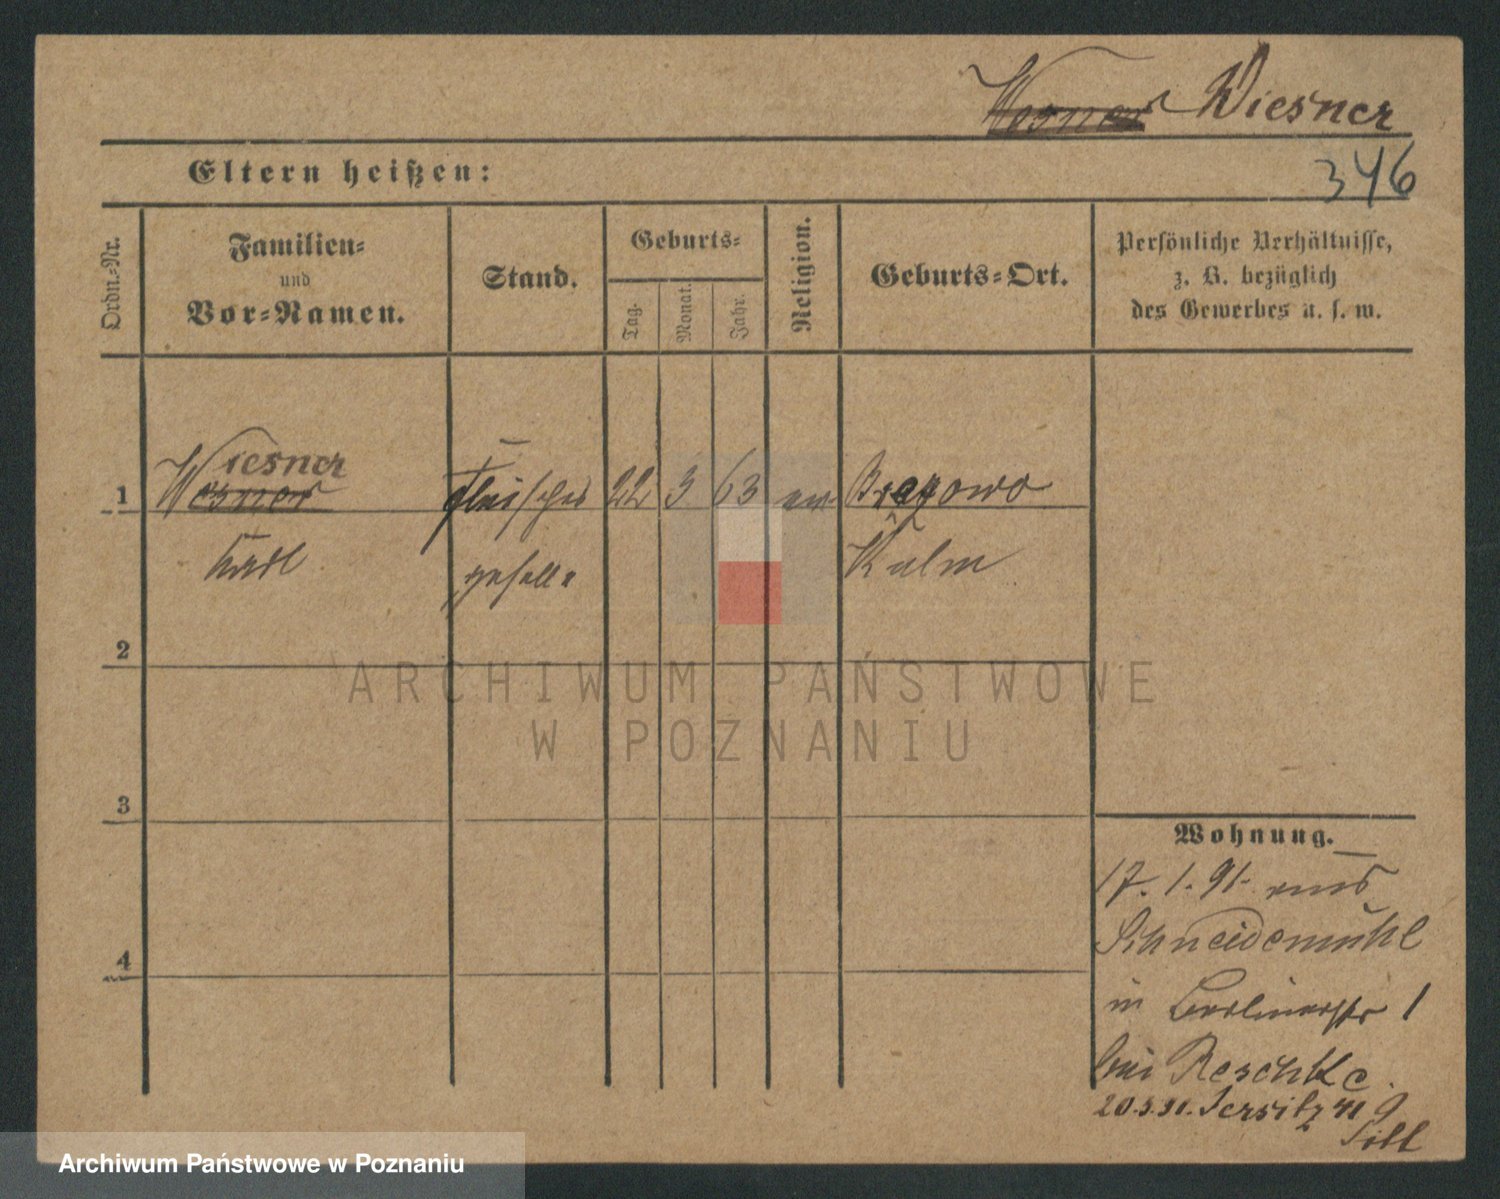 Wesner Wiesner
Eltern heißen:
346
Ordn.-Nr.
Familien-
und
Vor-Namen.
Stand.
Geburts-
Tag.
Monat.
Jahr.
Religion.
Geburts-Ort.
Persönliche Verhältnisse,
z. B. bezüglich
des Gewerbes u. s. w.
Wiesner
1 Wesner Fleischer 22 3 63 ev. Brzozowo
Karl geselle Kulm
2
3
4
ARCHIWUM PAŃSTWOWE
W POZNANIU
Wohnung.
17. 1. 91. aus
Schneidemühl
in Berlinerstr 1
bei Reschke.
20.5.91. Jersitz 41
Archiwum Państwowe w Poznaniu